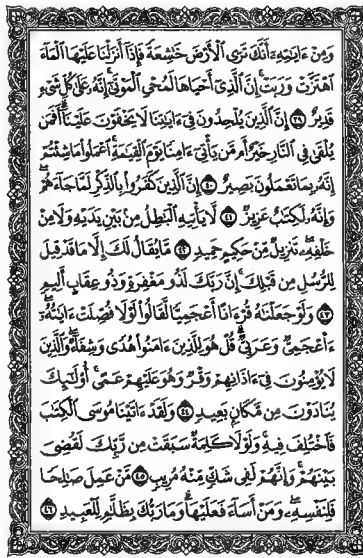 وَمِنْ ءَايَٰتِهِۦٓ أَنَّكَ تَرَى ٱلْأَرْضَ خَٰشِعَةً فَإِذَآ أَنزَلْنَا عَلَيْهَا ٱلْمَآءَ
ٱهْتَزَّتْ وَرَبَتْ ۚ إِنَّ ٱلَّذِىٓ أَحْيَاهَا لَمُحْىِ ٱلْمَوْتَىٰٓ ۚ إِنَّهُۥ عَلَىٰ كُلِّ شَىْءٍ
قَدِيرٌ ٣٩ إِنَّ ٱلَّذِينَ يُلْحِدُونَ فِىٓ ءَايَٰتِنَا لَا يَخْفَوْنَ عَلَيْنَآ ۗ أَفَمَن
يُلْقَىٰ فِى ٱلنَّارِ خَيْرٌ أَم مَّن يَأْتِىٓ ءَامِنًا يَوْمَ ٱلْقِيَٰمَةِ ۚ ٱعْمَلُوا۟ مَا شِئْتُمْ
إِنَّهُۥ بِمَا تَعْمَلُونَ بَصِيرٌ ٤٠ إِنَّ ٱلَّذِينَ كَفَرُوا۟ بِٱلذِّكْرِ لَمَّا جَآءَهُمْ ۖ
وَإِنَّهُۥ لَكِتَٰبٌ عَزِيزٌ ٤١ لَّا يَأْتِيهِ ٱلْبَٰطِلُ مِنۢ بَيْنِ يَدَيْهِ وَلَا مِنْ
خَلْفِهِۦ ۖ تَنزِيلٌ مِّنْ حَكِيمٍ حَمِيدٍ ٤٢ مَّا يُقَالُ لَكَ إِلَّا مَا قَدْ قِيلَ
لِلرُّسُلِ مِن قَبْلِكَ ۚ إِنَّ رَبَّكَ لَذُو مَغْفِرَةٍ وَذُو عِقَابٍ أَلِيمٍ
٤٣ وَلَوْ جَعَلْنَٰهُ قُرْءَانًا أَعْجَمِيًّا لَّقَالُوا۟ لَوْلَا فُصِّلَتْ ءَايَٰتُهُۥٓ ۖ
ءَا۬عْجَمِىٌّ وَعَرَبِىٌّ ۗ قُلْ هُوَ لِلَّذِينَ ءَامَنُوا۟ هُدًى وَشِفَآءٌ ۖ وَٱلَّذِينَ
لَا يُؤْمِنُونَ فِىٓ ءَاذَانِهِمْ وَقْرٌ وَهُوَ عَلَيْهِمْ عَمًى ۚ أُو۟لَٰٓئِكَ
يُنَادَوْنَ مِن مَّكَانٍۭ بَعِيدٍ ٤٤ وَلَقَدْ ءَاتَيْنَا مُوسَى ٱلْكِتَٰبَ
فَٱخْتُلِفَ فِيهِ ۗ وَلَوْلَا كَلِمَةٌ سَبَقَتْ مِن رَّبِّكَ لَقُضِىَ
بَيْنَهُمْ ۚ وَإِنَّهُمْ لَفِى شَكٍّ مِّنْهُ مُرِيبٍ ٤٥ مَّنْ عَمِلَ صَٰلِحًا
فَلِنَفْسِهِۦ ۖ وَمَنْ أَسَآءَ فَعَلَيْهَا ۗ وَمَا رَبُّكَ بِظَلَّٰمٍ لِّلْعَبِيدِ ٤٦